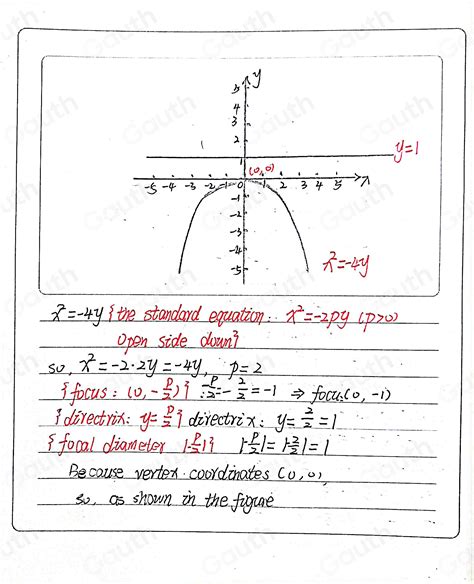 y
5
4
3
2
1
y=1
(0,0)
-5 -4 -3 -2 -1 0 1 2 3 4 5 x
-1
-2
-3
-4
-5
x²=-4y
x²=-4y {the standard equation: x²=-2py (p>0)
open side down}
so, x²=-2·2y=-4y, p=2
{focus: (0,-p/2)} -p/2=-2/2=-1 ⇒ focu:(0,-1)
{directrix: y=p/2} directrix: y=2/2=1
{focal diameter |-p/2|} |-p/2|=|-2/2|=1
Because vertex coordinates (0,0),
so, as shown in the figure
Gauth